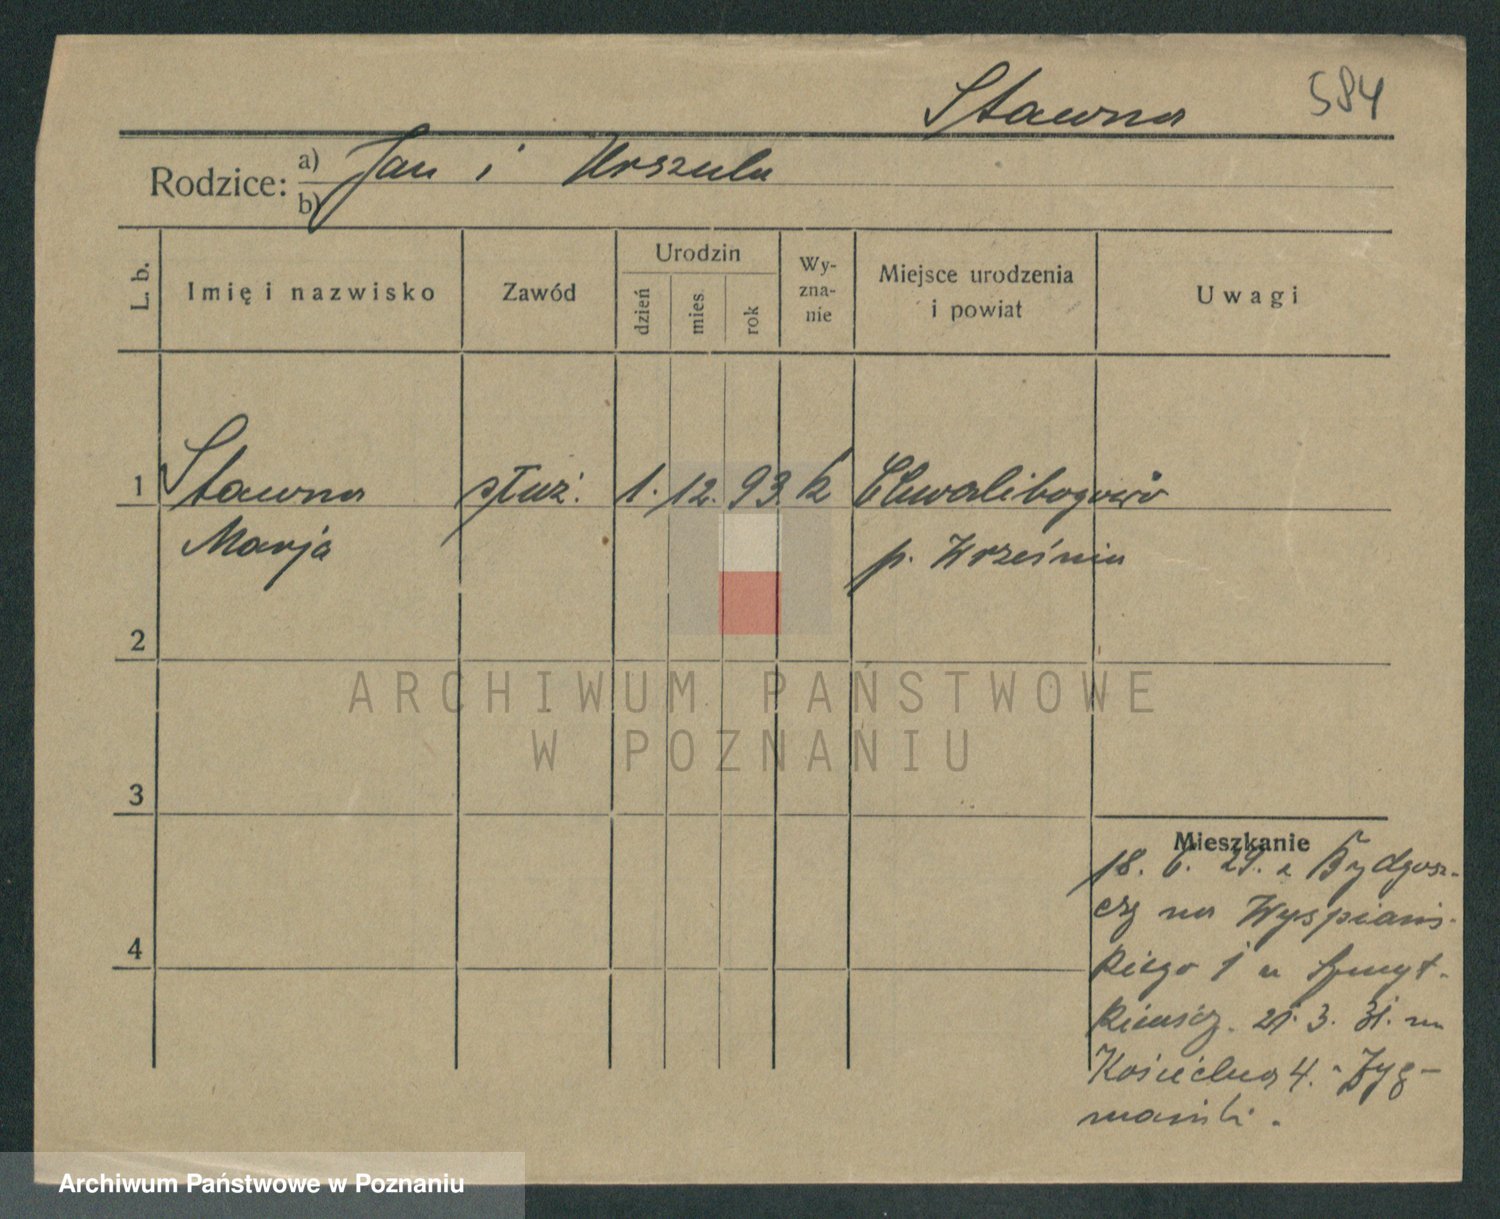 Stawna 584
Rodzice: a) Jan i Urszula
b)
L. b. Imię i nazwisko Zawód Urodzin dzień mies rok Wy-zna-nie Miejsce urodzenia i powiat Uwagi
1 Stawna służ. 1. 12. 93. k Chwalibogowo
Marja p. Września
2
ARCHIWUM PAŃSTWOWE
W POZNANIU
3
Mieszkanie
18. 6. 29. z Bydgosz-
czy na Wyspiańs-
4
kiego 1 u
21. 3. 31. na
Kościelna 4. - Zyg-
mański.
Archiwum Państwowe w Poznaniu